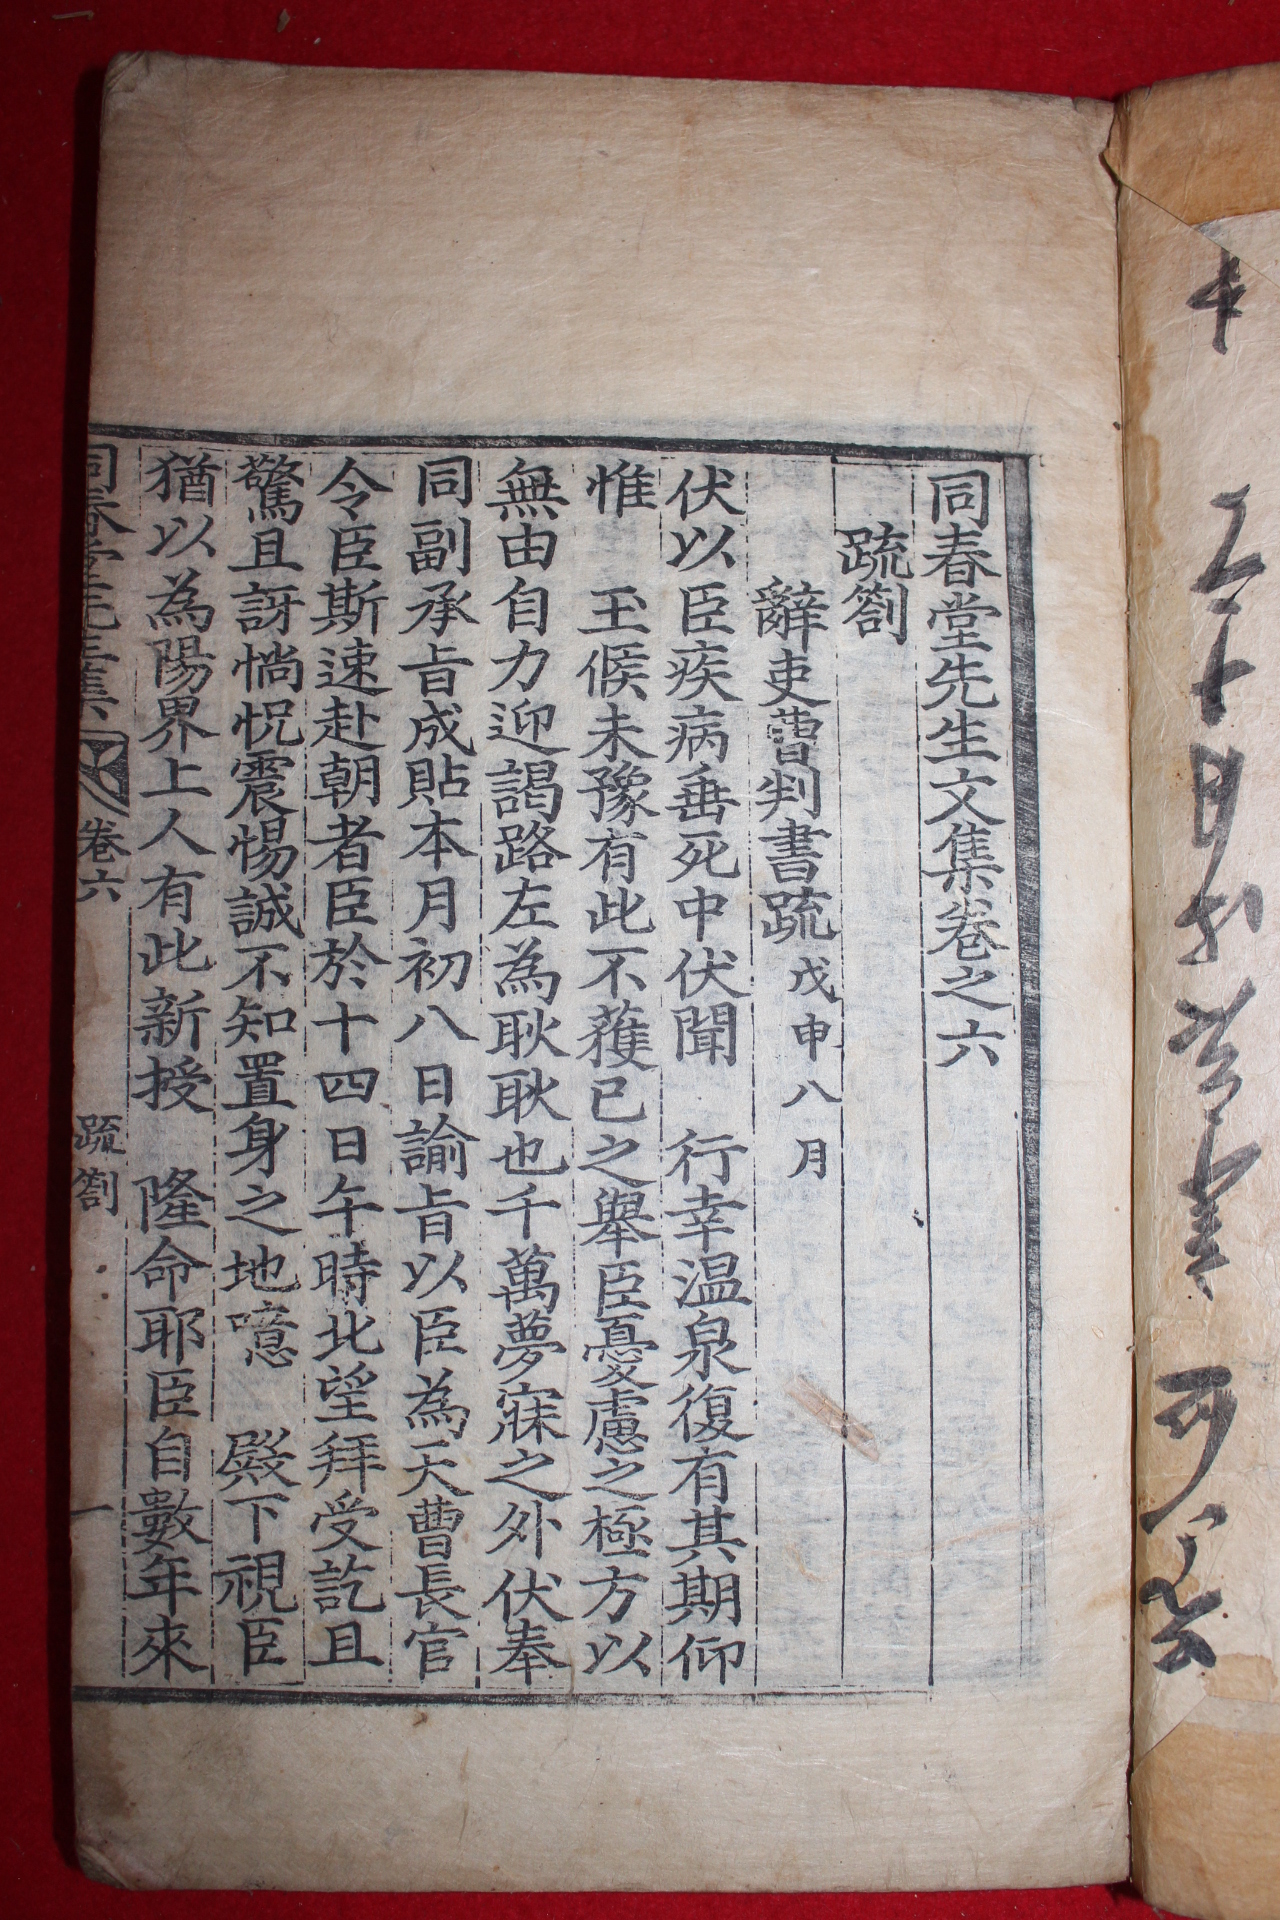 同春堂先生文集卷之六
疏劄
辭吏曹判書疏 戊申八月
伏以臣疾病垂死中伏聞 行幸温泉復有其期仰
惟 玉候未豫有此不獲已之舉臣憂慮之極方以
無由自力迎謁路左為耿耿也千萬夢寐之外伏奉
同副承旨成貼本月初八日諭旨以臣為天曹長官
令臣斯速赴朝者臣於十四日午時北望拜受訖且
驚且訝惝怳震惕誠不知置身之地噫 殿下視臣
猶以為陽界上人有此新授 隆命耶臣自數年來
同春堂先生集 卷六 疏劄 一